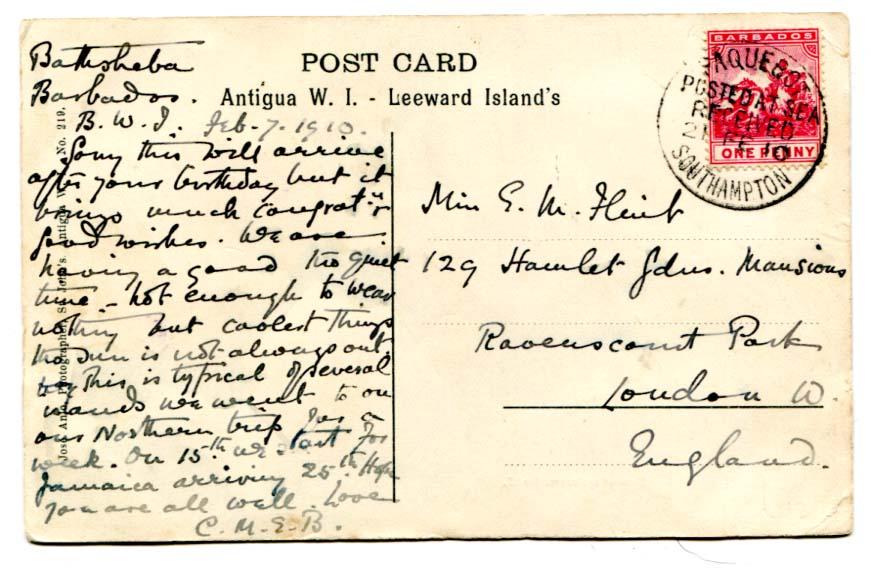 POST CARD
Antigua W. I. - Leeward Island's
Bathsheba
Barbados.
B. W. I. Feb. 7. 1910.
Sorry this will arrive
after your birthday but it
brings much congratns &
good wishes. We are
having a good tho quiet
time - hot enough to wear
nothing but coolest things
tho sun is not always out
This is typical of several
islands we went to on
our Northern trip for a
week. On 15th we start for
Jamaica arriving 25th. Hope
you are all well. Love
C. M. E. B.
José Anjo, Photographer, St. John's, Antigua No. 219.
BARBADOS
ONE PENNY
PAQUEBOT
POSTED AT SEA
RECEIVED
21 FE 10
SOUTHAMPTON
Miss E. M. Flint
129 Hamlet Gdns. Mansions
Ravenscourt Park
London W.
England.